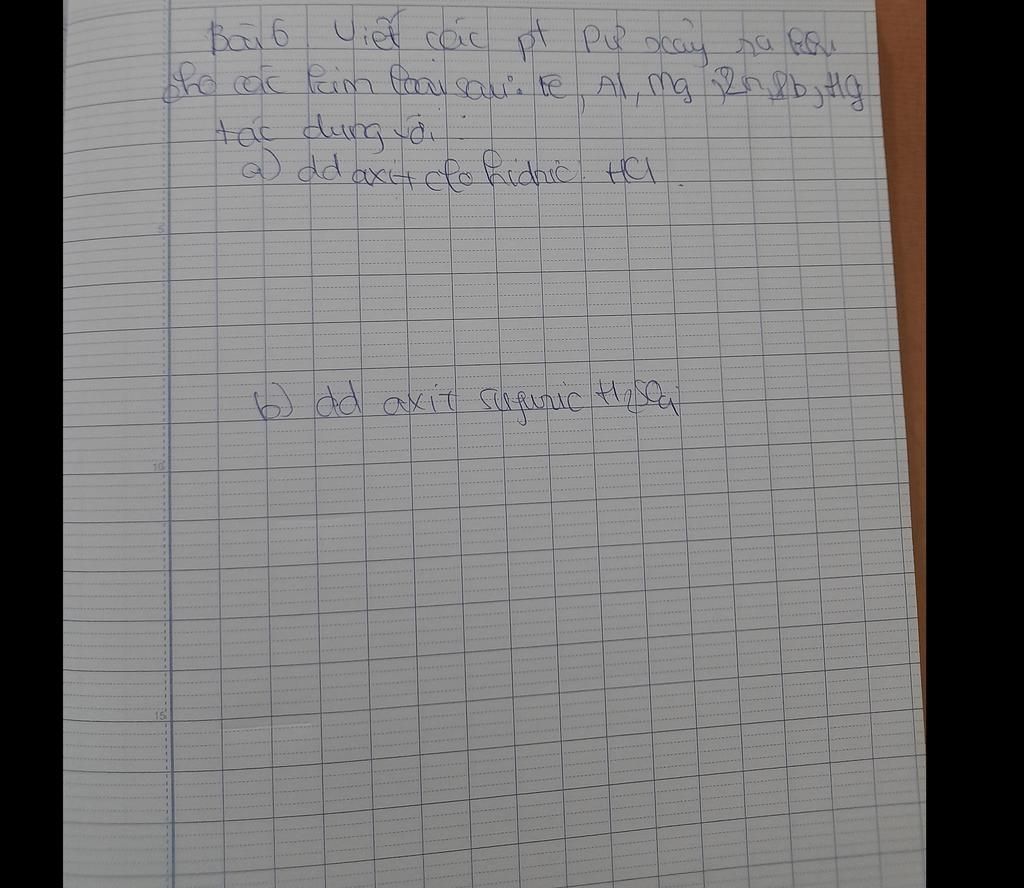 Bài 6 Viết các pt pứ xảy ra khi
cho các kim loại sau: Fe, Al, Mg, Zn, Pb, Hg
tác dụng với:
a) dd axit clo hidric HCl.
b) dd axit sufuric H₂SO₄
5
10
15